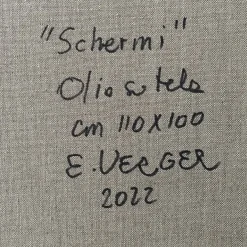 "Schermi"
Olio su tela
cm 110X100
E. VERGER
2022